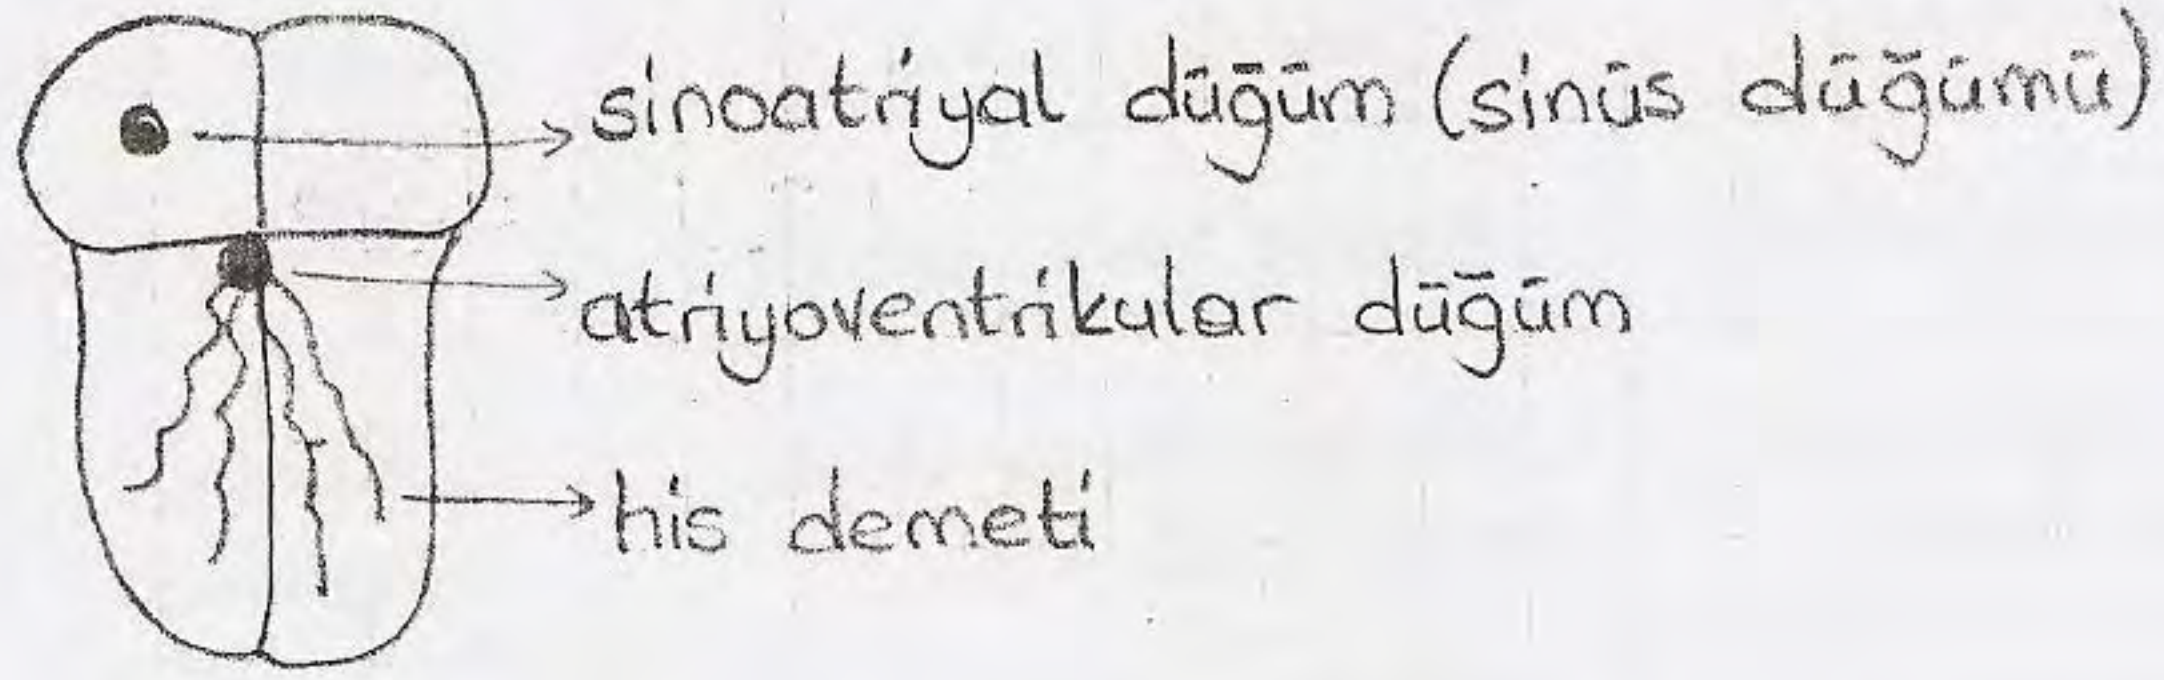 sinoatriyal düğüm (sinüs düğümü)
atriyoventrikular düğüm
his demeti